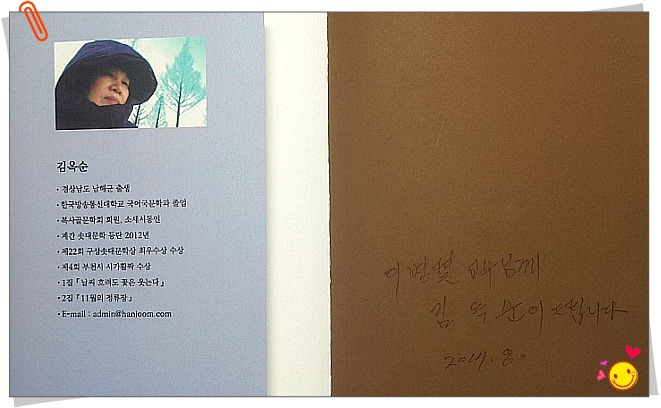 김옥순
· 경상남도 남해군 출생
· 한국방송통신대학교 국어국문학과 졸업
· 복사골문학회 회원, 소새시동인
· 계간 솟대문학 등단 2012년
· 제22회 구상솟대문학상 최우수상 수상
· 제4회 부천시 시가활짝 수상
· 1집 「날씨 흐려도 꽃은 웃는다」
· 2집 「11월의 정류장」
· E-mail : admin@hanjoom.com
교수님께
김옥순이 드립니다